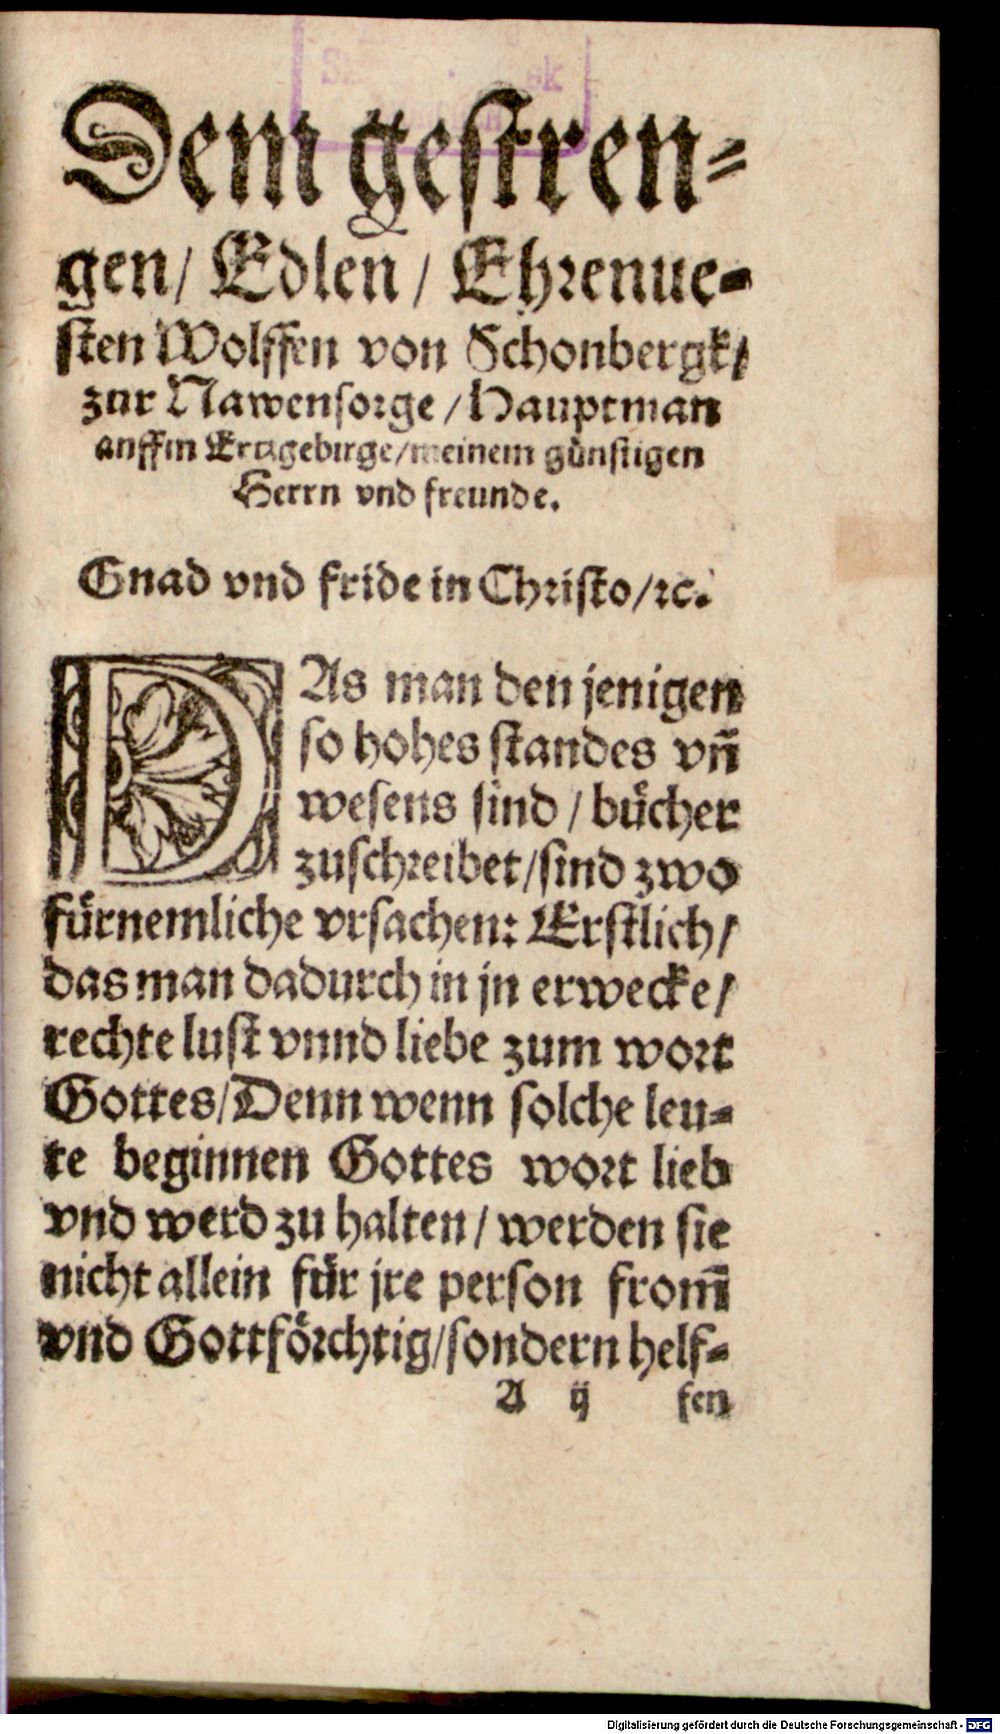 Dem gestren-
gen/ Edlen/ Ehrenue-
sten Wolffen von Schonbergk/
zur Nawensorge/ Hauptman
auffm Ertzgebirge/ meinem günstigen
Herrn vnd freunde.
Gnad vnd fride in Christo/ ꝛc.
DAs man den jenigen
so hohes standes vn̄
wesens sind/ bücher
zuschreibet/ sind zwo
fürnemliche vrsachen: Erstlich/
das man dadurch in jn erwecke/
rechte lust vnnd liebe zum wort
Gottes/ Denn wenn solche leu-
te beginnen Gottes wort lieb
vnd werd zu halten/ werden sie
nicht allein für jre person from̄
vnd Gottförchtig/ sondern helf-
A ij fen
Digitalisierung gefördert durch die Deutsche Forschungsgemeinschaft - DFG